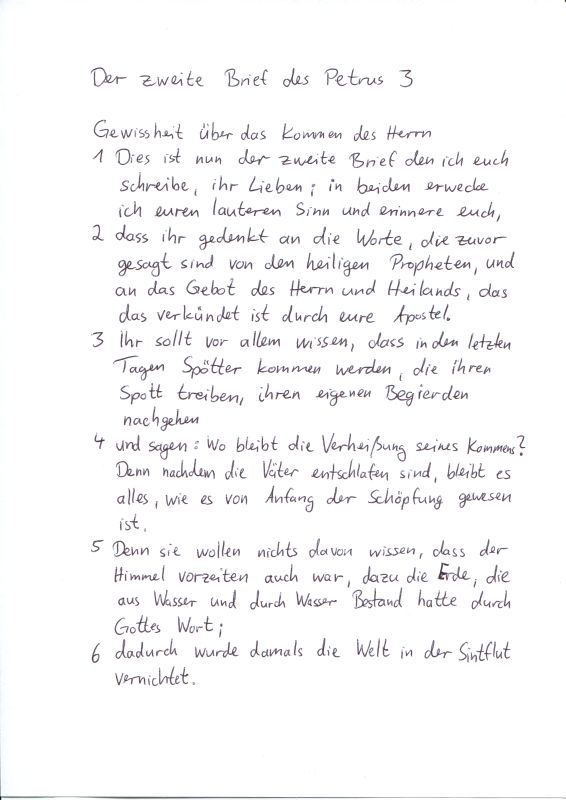 Der zweite Brief des Petrus 3
Gewissheit über das Kommen des Herrn
1 Dies ist nun der zweite Brief den ich euch
schreibe, ihr Lieben; in beiden erwecke
ich euren lauteren Sinn und erinnere euch,
2 dass ihr gedenkt an die Worte, die zuvor
gesagt sind von den heiligen Propheten, und
an das Gebot des Herrn und Heilands, das
das verkündet ist durch eure Apostel.
3 Ihr sollt vor allem wissen, dass in den letzten
Tagen Spötter kommen werden, die ihren
Spott treiben, ihren eigenen Begierden
nachgehen
4 und sagen: Wo bleibt die Verheißung seines Kommens?
Denn nachdem die Väter entschlafen sind, bleibt es
alles, wie es von Anfang der Schöpfung gewesen
ist.
5 Denn sie wollen nichts davon wissen, dass der
Himmel vorzeiten auch war, dazu die Erde, die
aus Wasser und durch Wasser Bestand hatte durch
Gottes Wort;
6 dadurch wurde damals die Welt in der Sintflut
vernichtet.